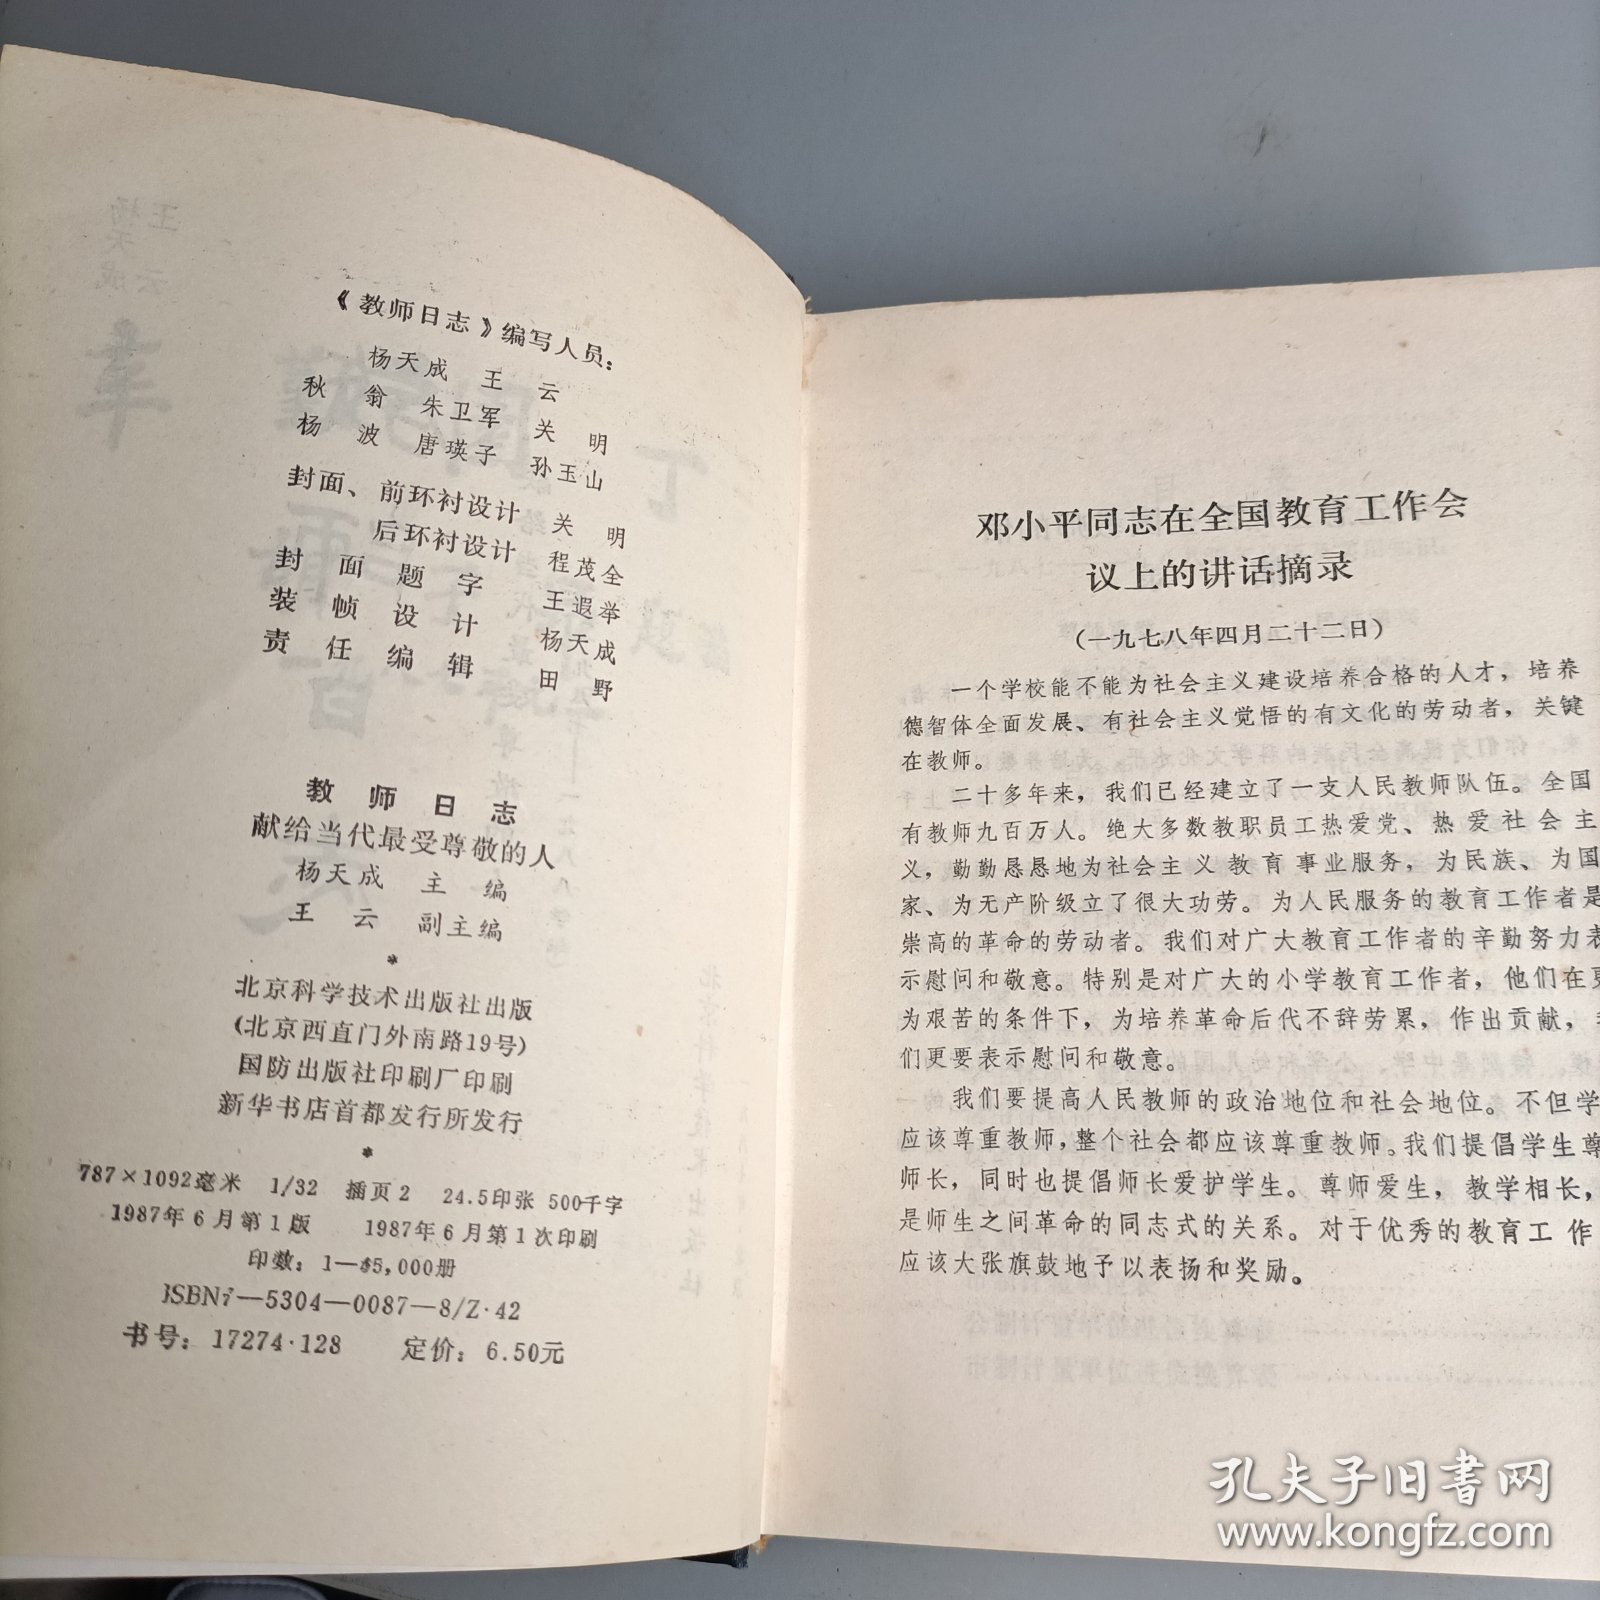 《教师日志》编写人员：
杨天成 王 云
秋 翁 朱卫军 关 明
杨 波 唐瑛子 孙玉山
封面、前环衬设计 关 明
后环衬设计 程茂全
封面题字 王遐举
装帧设计 杨天成
责任编辑 田 野
教师日志
献给当代最受尊敬的人
杨天成 主 编
王 云 副主编
*
北京科学技术出版社出版
(北京西直门外南路19号)
国防出版社印刷厂印刷
新华书店首都发行所发行
*
787×1092毫米 1/32 插页2 24.5印张 500千字
1987年6月第1版 1987年6月第1次印刷
印数：1—45,000册
ISBN7—5304—0087—8/Z·42
书号：17274·128 定价：6.50元
邓小平同志在全国教育工作会
议上的讲话摘录
(一九七八年四月二十二日)
一个学校能不能为社会主义建设培养合格的人才，培养
德智体全面发展、有社会主义觉悟的有文化的劳动者，关键
在教师。
二十多年来，我们已经建立了一支人民教师队伍。全国
有教师九百万人。绝大多数教职员工热爱党、热爱社会主
义，勤勤恳恳地为社会主义教育事业服务，为民族、为国
家、为无产阶级立了很大功劳。为人民服务的教育工作者是
崇高的革命的劳动者。我们对广大教育工作者的辛勤努力表
示慰问和敬意。特别是对广大的小学教育工作者，他们在更
为艰苦的条件下，为培养革命后代不辞劳累，作出贡献，
们更要表示慰问和敬意。
我们要提高人民教师的政治地位和社会地位。不但学
应该尊重教师，整个社会都应该尊重教师。我们提倡学生尊
师长，同时也提倡师长爱护学生。尊师爱生，教学相长，
是师生之间革命的同志式的关系。对于优秀的教育工作
应该大张旗鼓地予以表扬和奖励。
孔夫子旧书网
www.kongfz.com